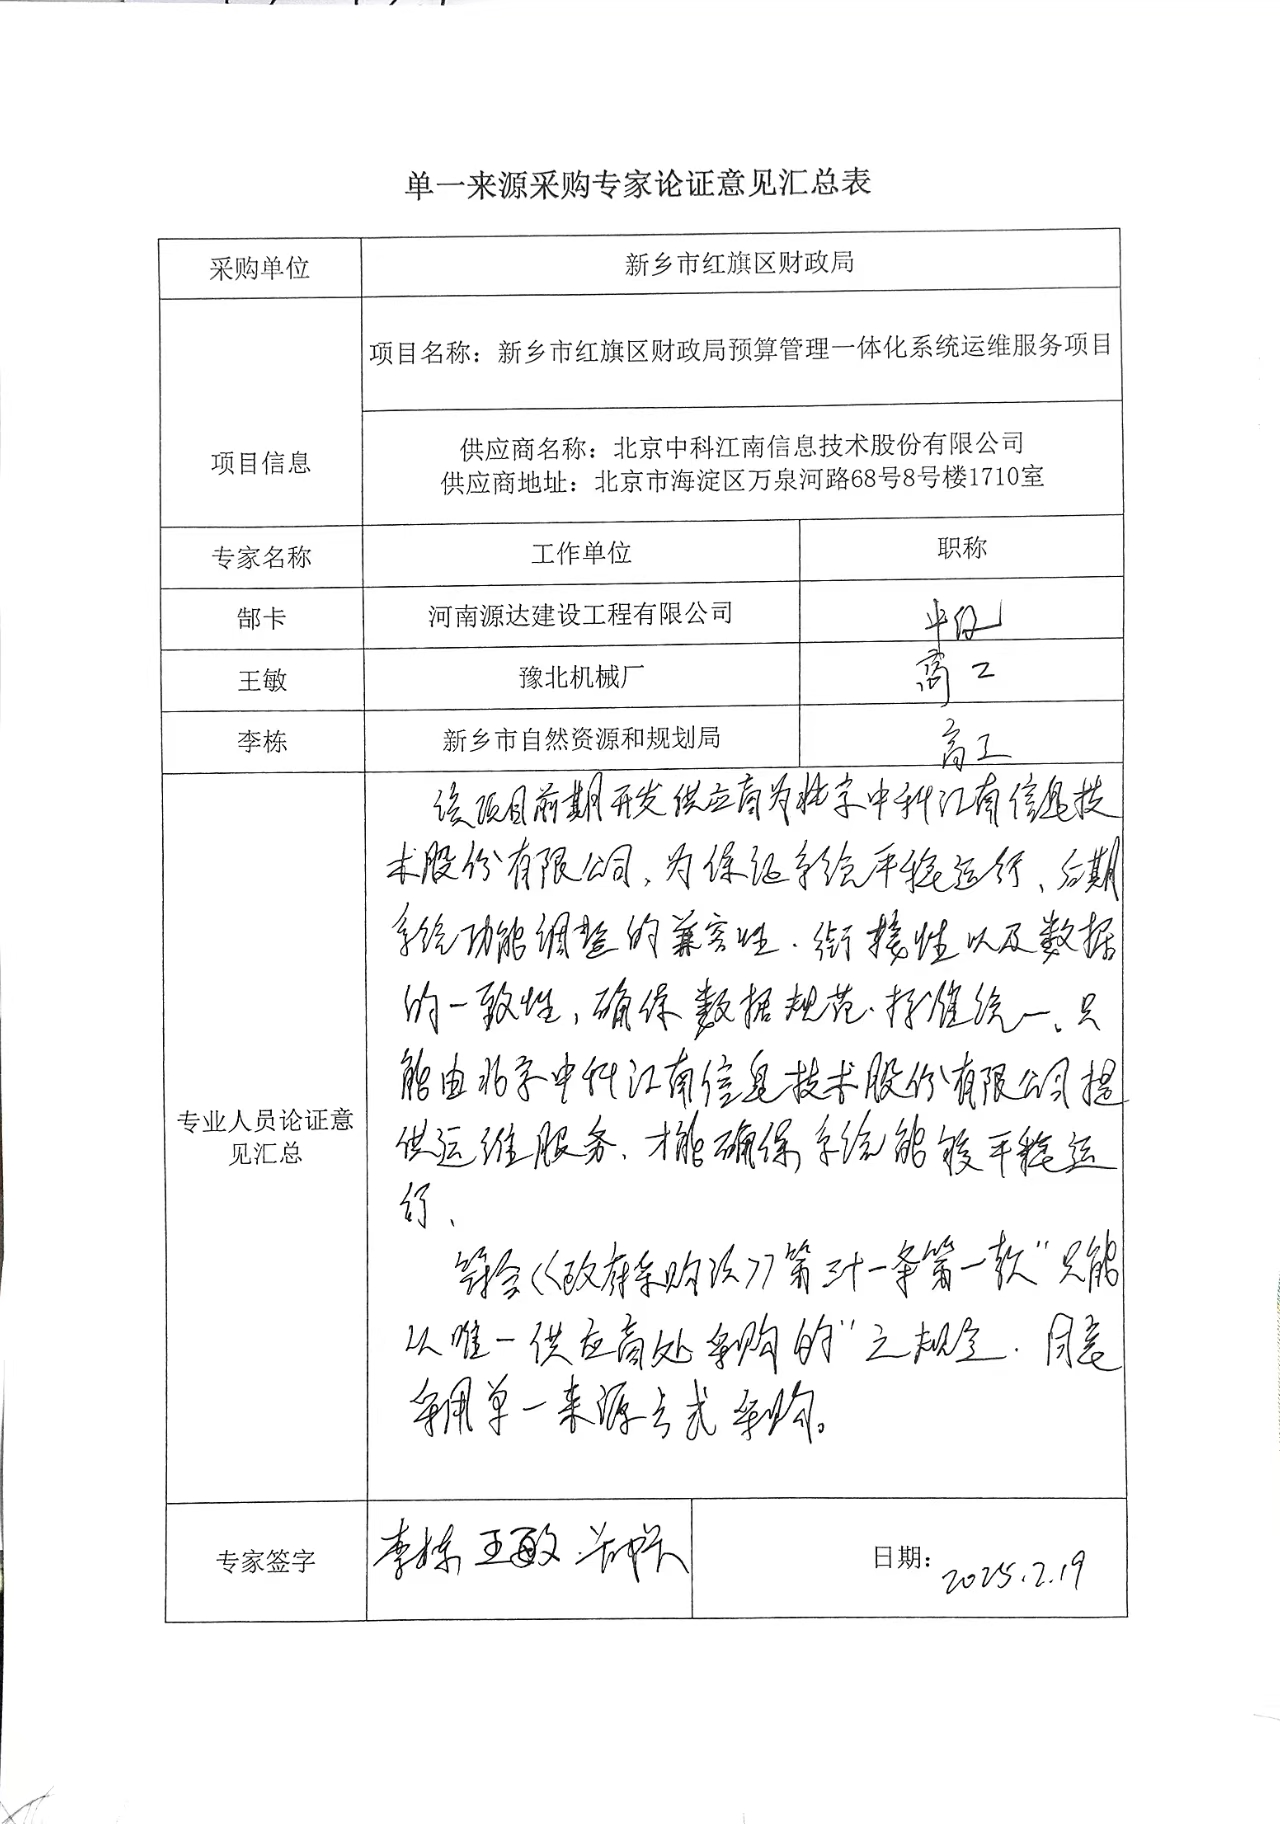 单一来源采购专家论证意见汇总表
采购单位
新乡市红旗区财政局
项目信息
项目名称：新乡市红旗区财政局预算管理一体化系统运维服务项目
供应商名称：北京中科江南信息技术股份有限公司
供应商地址：北京市海淀区万泉河路68号8号楼1710室
专家名称
工作单位
职称
郜卡
河南源达建设工程有限公司
中级
王敏
豫北机械厂
高工
李栋
新乡市自然资源和规划局
高工
专业人员论证意
见汇总
该项目前期开发供应商为北京中科江南信息技
术股份有限公司、为保证系统平稳运行、后期
系统功能调整的兼容性、衔接性以及数据
的一致性，确保数据规范、标准统一、只
能由北京中科江南信息技术股份有限公司提
供运维服务、才能确保系统能够平稳运
行、
符合《政府采购法》第三十一条第一款“只能
从唯一供应商处采购的”之规定、同意
采用单一来源方式采购。
专家签字
李栋 王敏
日期：
2025.2.19